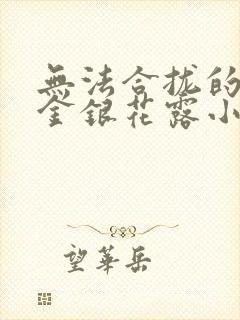 無法合拢的
金銀花露小
望華岳